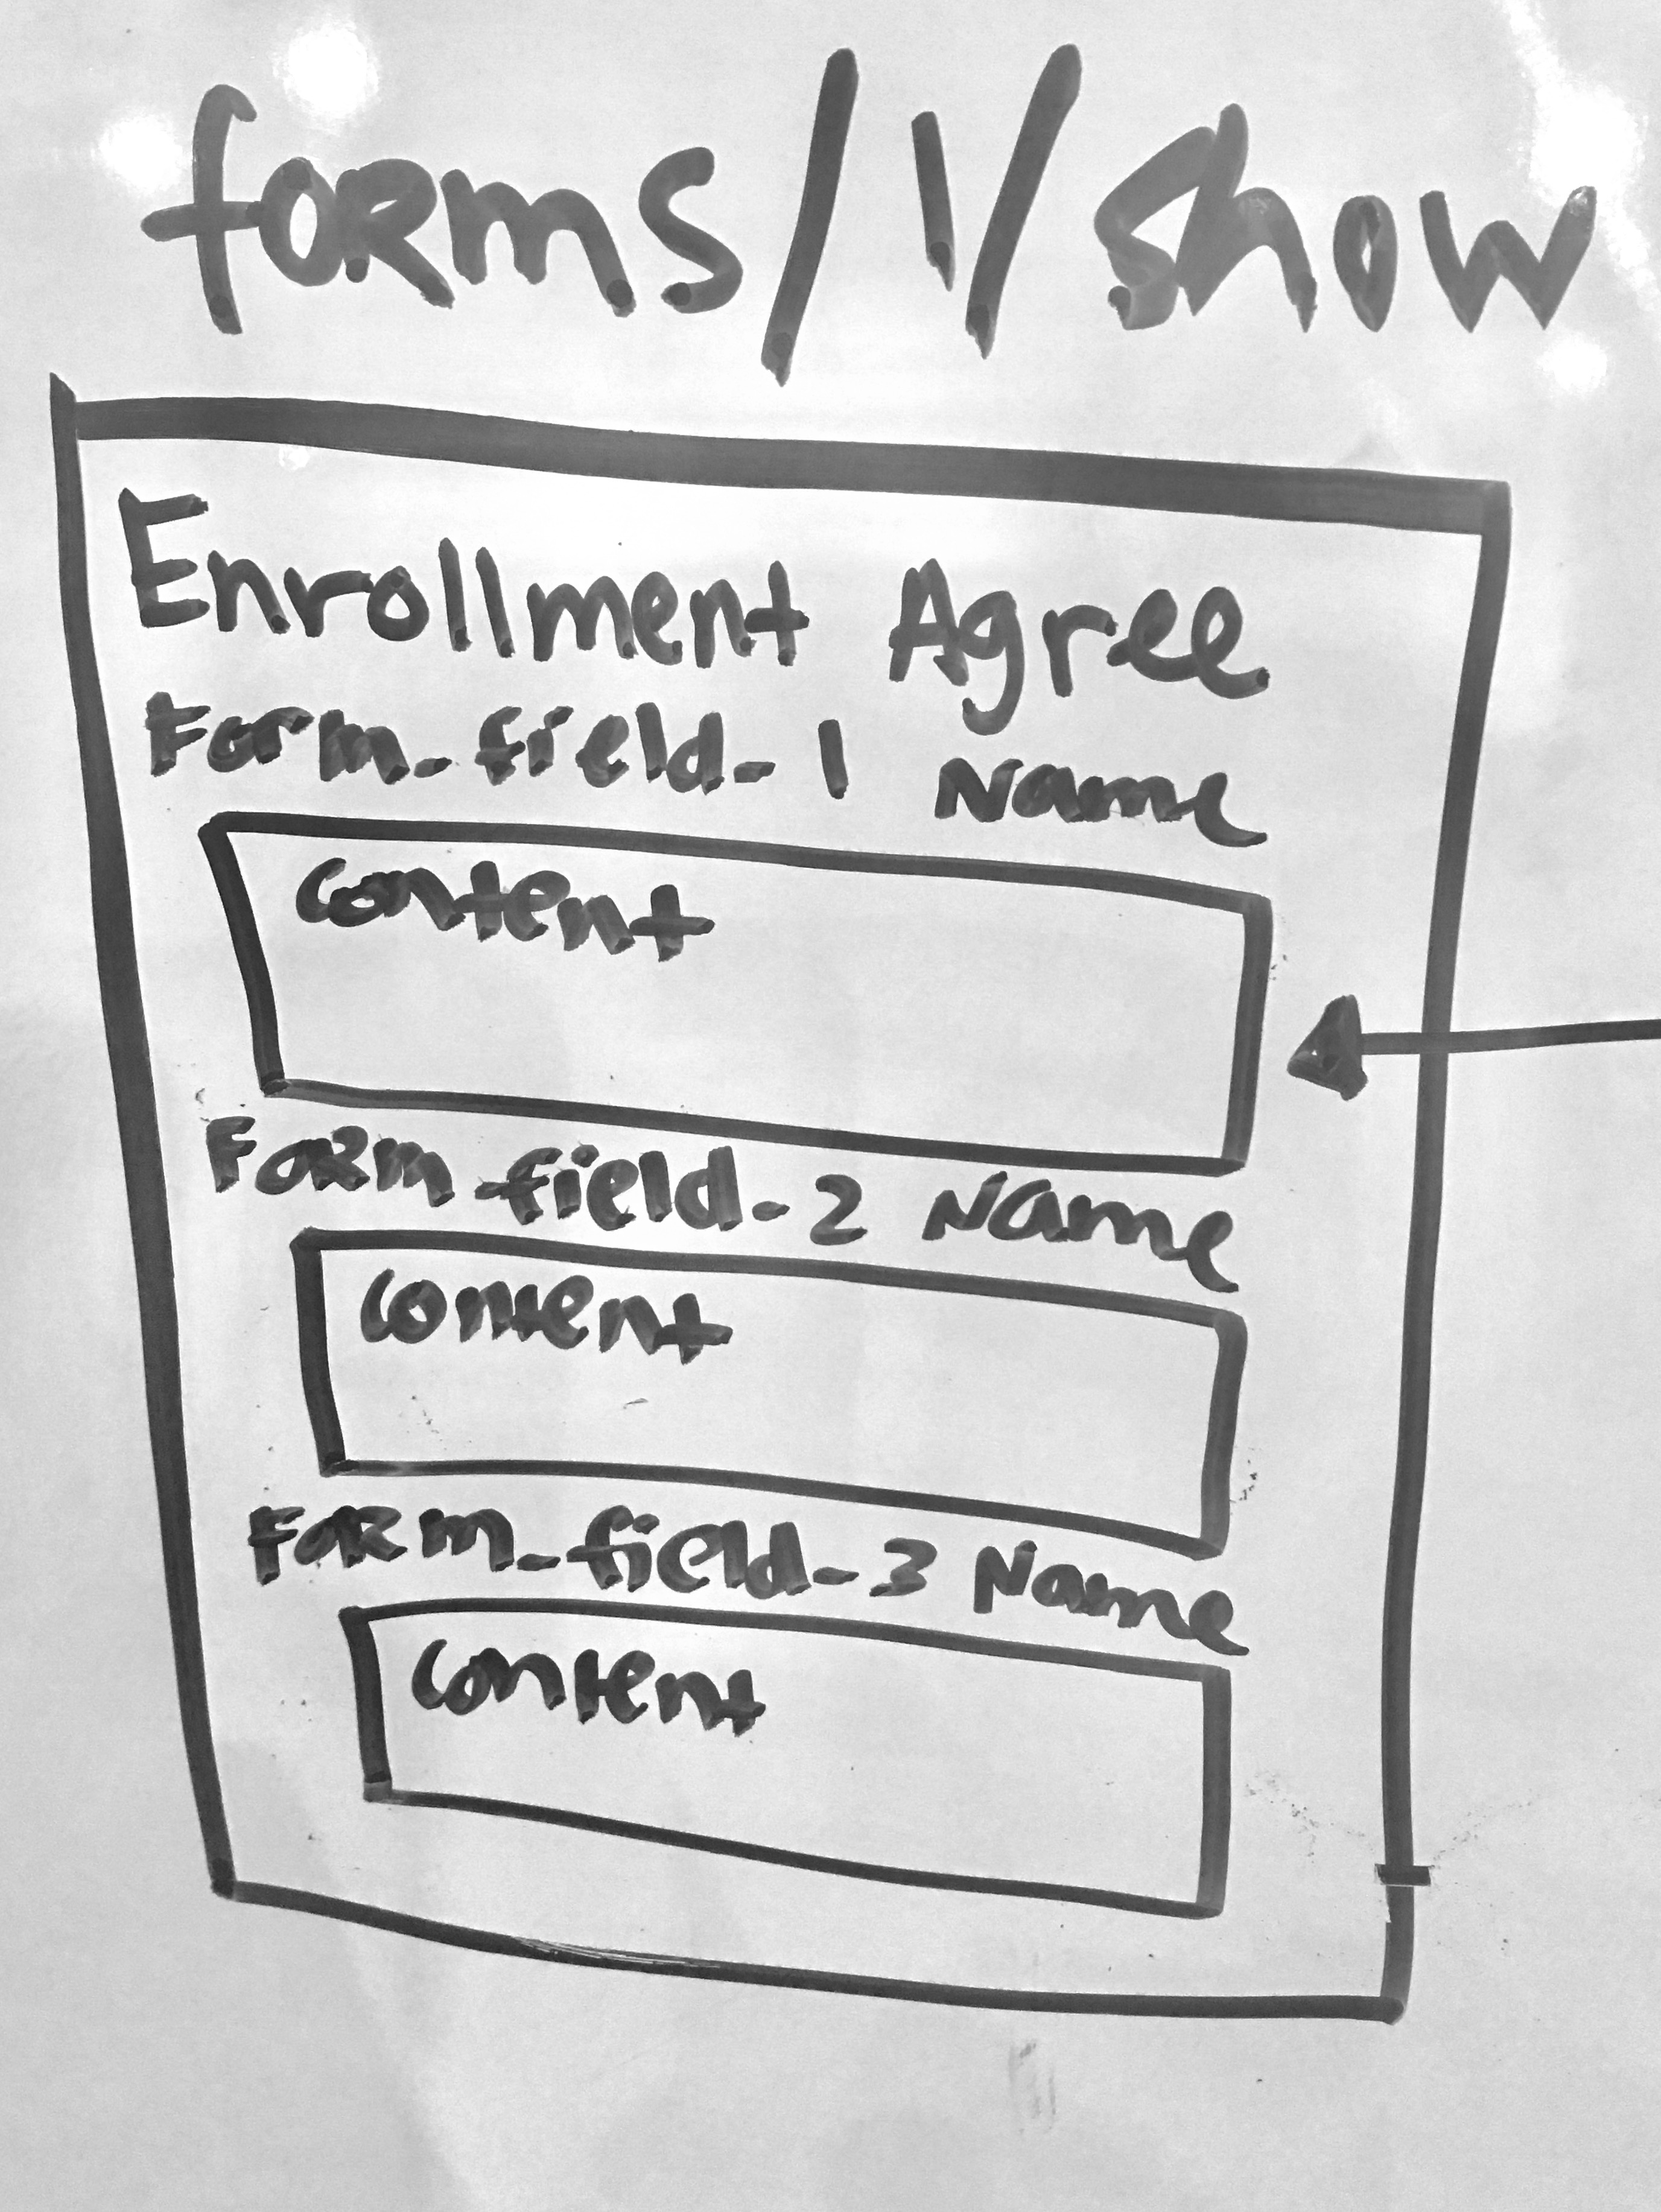 forms/1/show
Enrollment Agree
Form_field_1 Name
Content
Form_field_2 Name
Content
Form_field_3 Name
Content